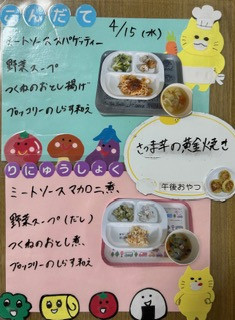 こんだて
4/15(水)
ミートソーススパゲッティー
野菜スープ
つくねのおとし揚げ
ブロッコリーのしらす和え
さつま芋の黄金焼き
午後おやつ
りにゅうしょく
ミートソースマカロニ煮
野菜スープ(だし)
つくねのおとし煮
ブロッコリーのしらす和え